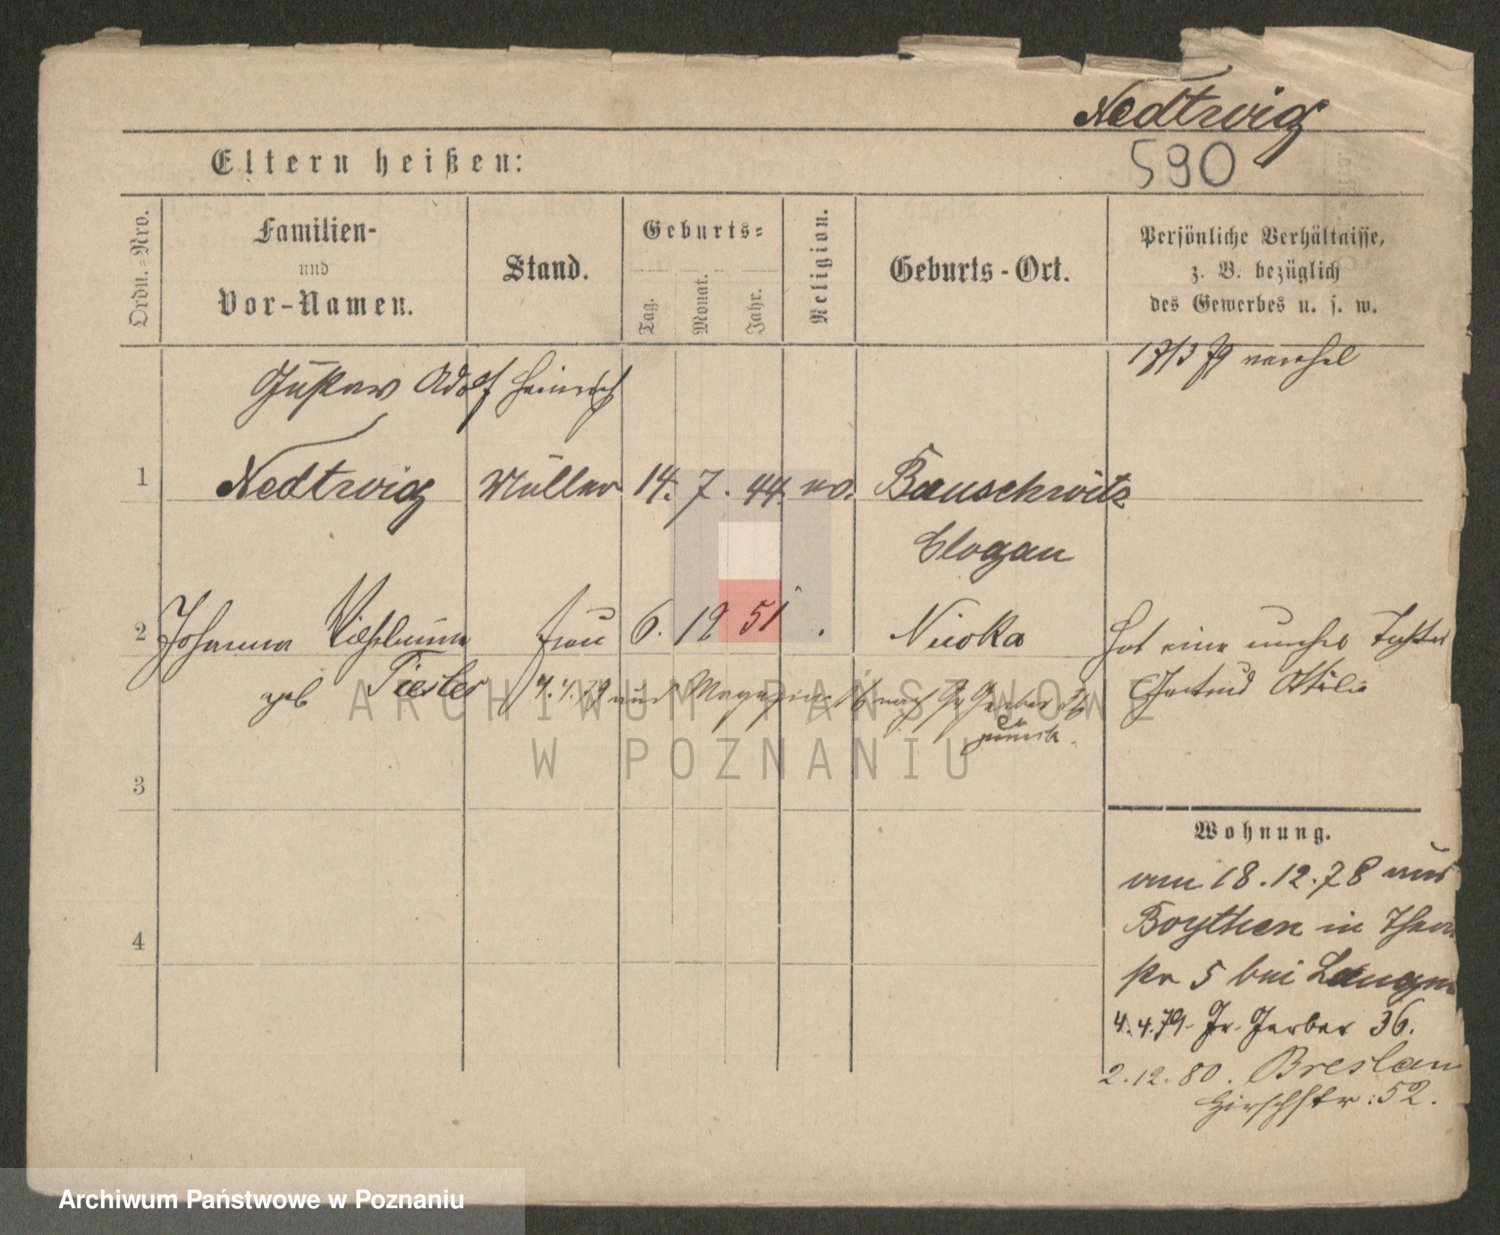 Nedtwig
590
Eltern heißen:
Ordn.-Nro.
Familien-
und
Vor-Namen.
Stand.
Geburts-
Tag.
Monat.
Jahr.
Religion.
Geburts-Ort.
Persönliche Verhältnisse,
z. B. bezüglich
des Gewerbes u. s. w.
17/3 79
Gustaw Adolf Heinrich
1 Nedtwig Müller 14. 7. 44. ev. Bauschwitz
Glogau
2 Johanna Wilhelmine frau 6. 12 51 . Nicoka Hat eine unehel Tochter
geb Tiesler 4.4.79 aus Magazin nach Gr Gerber 36 Gertrud Ottilie
zurück.
3
Wohnung.
vom 18.12.78 aus
Boythen in
4
5 bei
4.4.79- Gr. Gerber 36.
2.12.80. Breslau
Hirschstr: 52.
ARCHIWUM PAŃSTWOWE
W POZNANIU
Archiwum Państwowe w Poznaniu